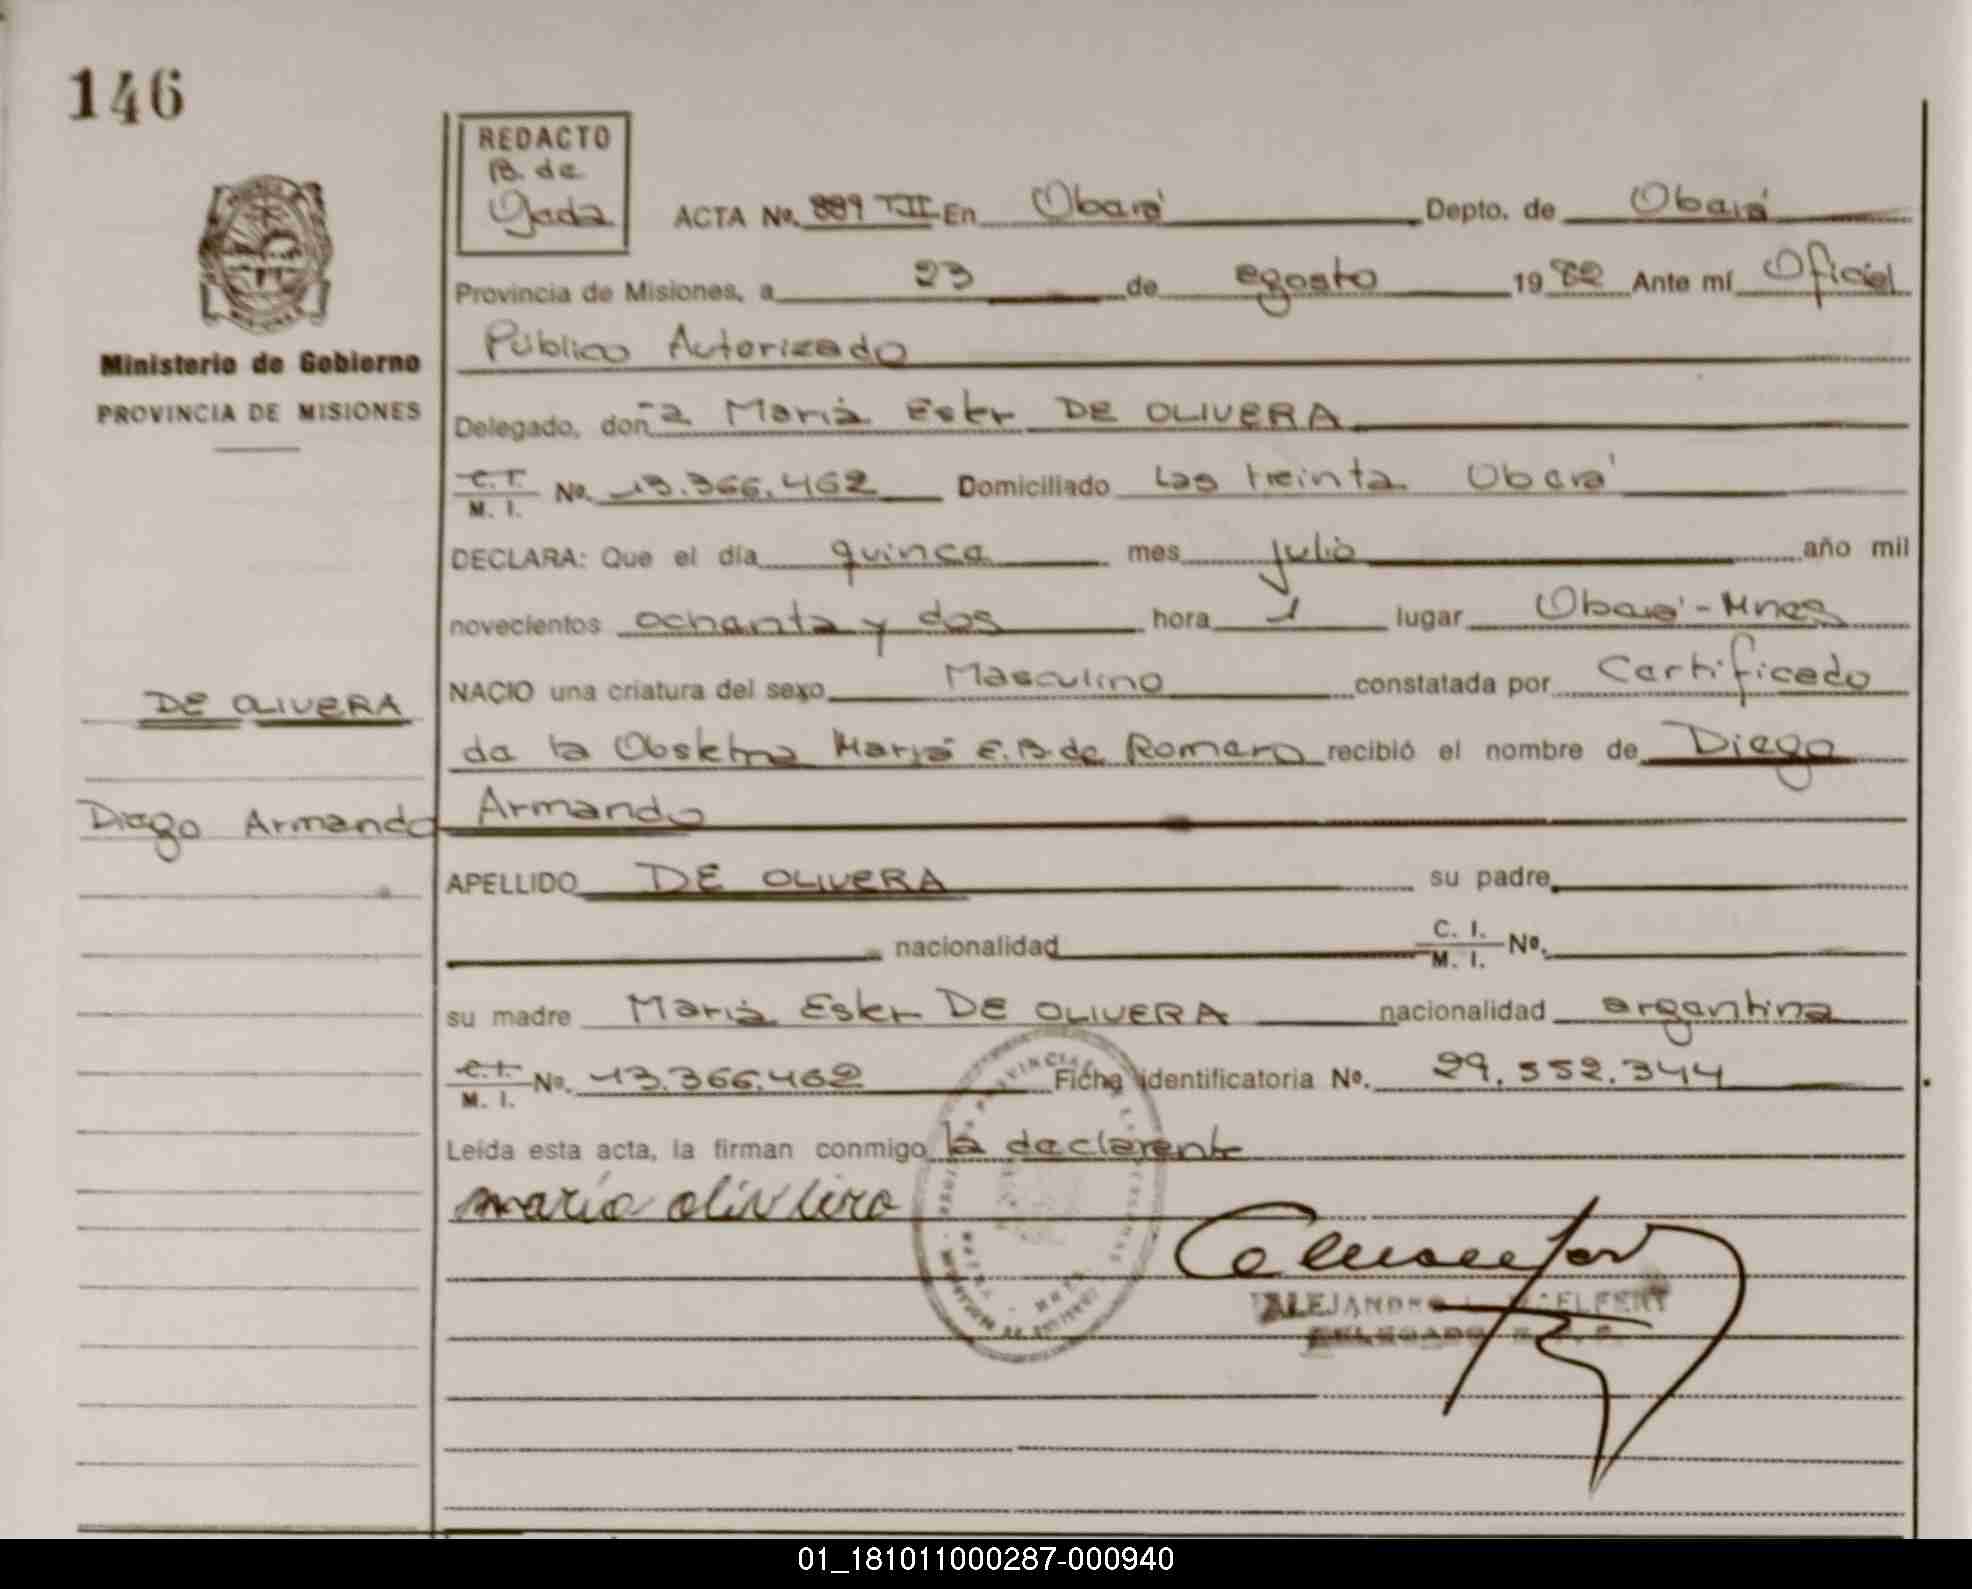 146
REDACTO
B. de
Ojeda
ACTA No. 889 TII En Oberá Depto. de Oberá
Provincia de Misiones, a 23 de agosto 1982 Ante mí Oficial
Público Autorizado
Ministerio de Gobierno
PROVINCIA DE MISIONES
Delegado, doña María Ester DE OLIVERA
C. I.
M. I. No. 13.366.462 Domiciliado Las treinta Oberá
DECLARA: Que el día quince mes julio año mil
novecientos ochenta y dos hora 1 lugar Oberá - Mnes
NACIO una criatura del sexo Masculino constatada por Certificado
DE OLIVERA
de la Obstetra María E. B. de Romero recibió el nombre de Diego
Diego Armando
Armando
APELLIDO DE OLIVERA su padre
nacionalidad C. I.
M. I. No.
su madre María Ester DE OLIVERA nacionalidad argentina
C. I.
M. I. No. 13.366.462 Ficha identificatoria No. 29.552.344
Leída esta acta, la firman conmigo la declarante
maría oliveira
ALEJANDRO
DELEGADO
01_181011000287-000940